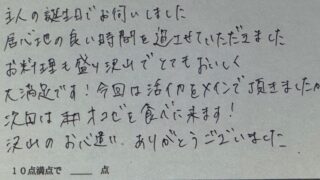 主人の誕生日でお伺いしました
居心地の良い時間を過させていただきました
お料理も盛り沢山でとてもおいしく
大満足です！今回は活イカをメインで頂きましたが
次回はオコゼを食べに来ます！
沢山のお心遣いありがとうございました
10点満点で ＿＿ 点